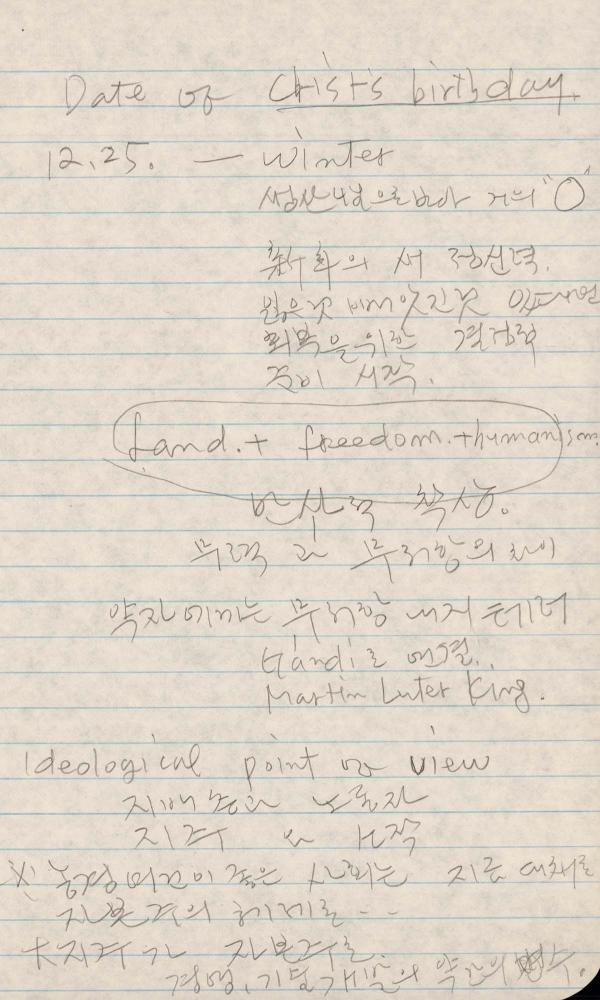 Date of Christ's birthday
12.25. — winter
생산성으로 보아 거의 "0"
의 새 정신력.
잃은것 빼앗긴것
회복을 위한 결정력
준비 시작.
Land. + freedom. + humanism.
착상.
무력과 무저항의 차이
약자에게는 무저항 내지 테러
Gandi로
Martin Luter King.
Ideological point of view
노동자
지주 와 소작
※ 농경여건이 좋은 사회는 지금 대체로
자본주의 체제로 --
大지주가 자본주로.
경영, 기술개발의 약간의